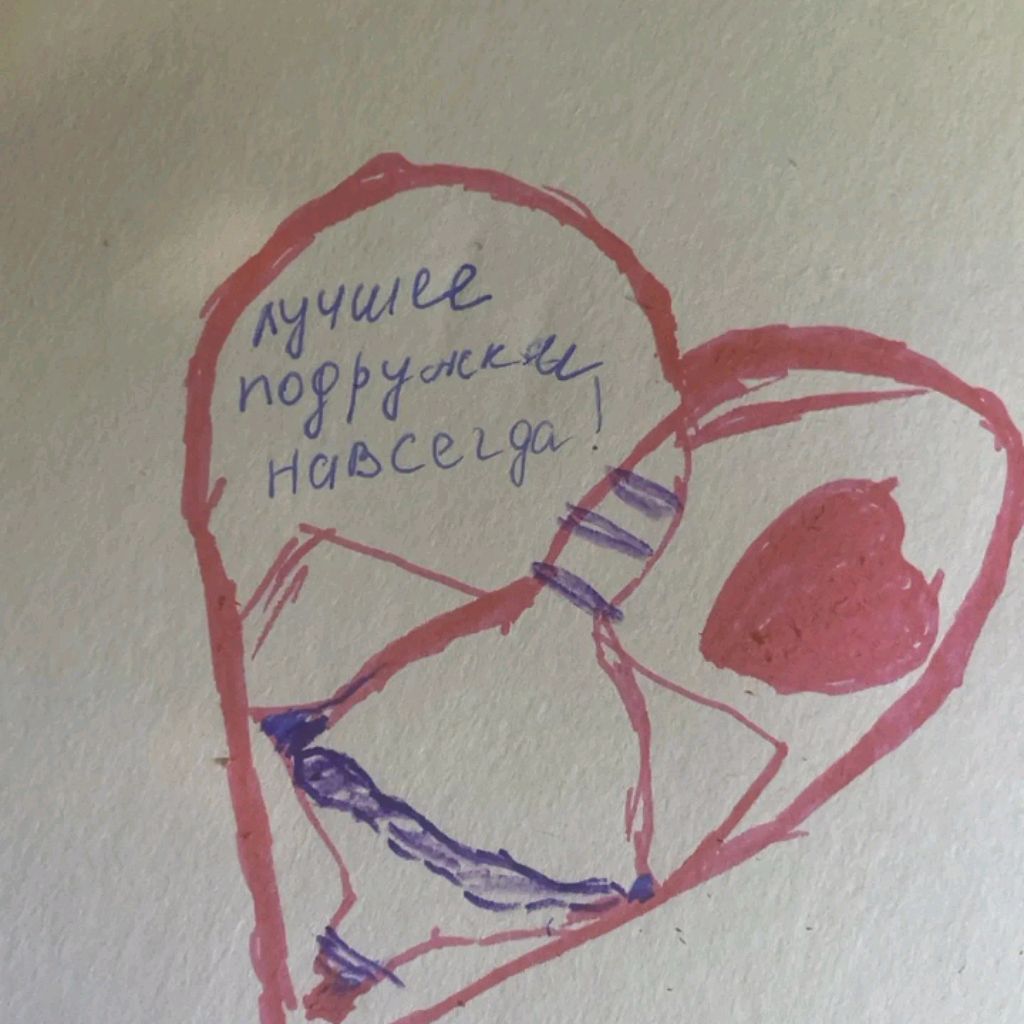 лучшее
подружки
навсегда!